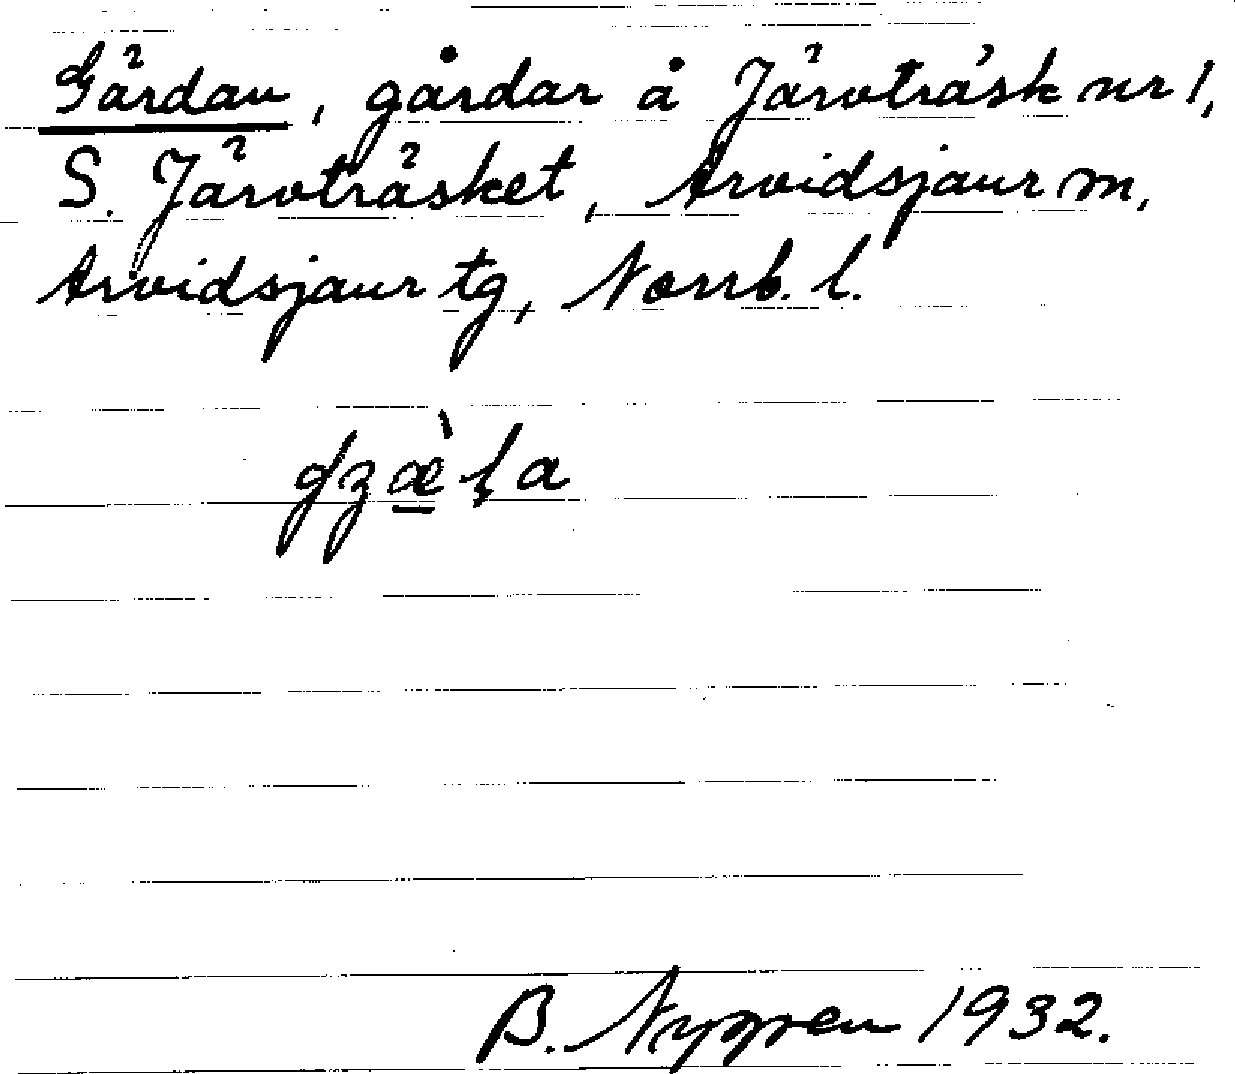 Gärdan, gårdar å Järvträsk nr 1,
S. Järvträsket, Arvidsjaur sn,
Arvidsjaur tg, Norrb. l.
B. Nygren 1932.